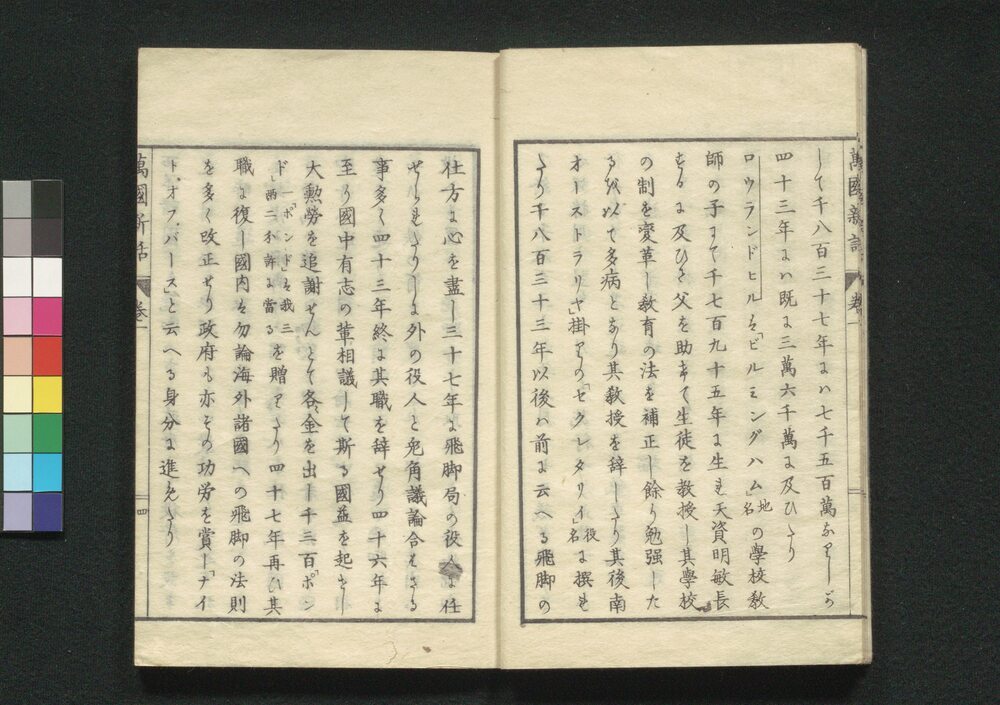 萬國新話 卷一
して千八百三十七年にハ七千五百萬なりしが
四十三年にハ既に三萬六千萬に及ひたり
ロウランドヒルは「ビルミングハム」地名の學校教
師の子にて千七百九十五年に生れ天資明敏長
するに及ひて父を助けて生徒を教授し其學校
の制を変革し教育の法を補正し餘り勉强した
るを以て多病となり其教授を辞したり其後南
オーストラリヤ掛りの「セクレタリイ」役名に撰れ
たり千八百三十三年以後ハ前に云へる飛脚の
仕方に心を盡し三十七年に飛脚局の役人に任
せられたりしに外の役人と兎角議論合はさる
事多く四十三年終に其職を辞せり四十六年に
至り國中有志の輩相議して斯る國益を起せし
大勲勞を追謝せんとて各金を出し千三百「ポン
ド」一「ポンド」は我三兩二分許に當るを贈りたり四十七年再ひ其
職に復し國内は勿論海外諸國への飛脚の法則
を多く改正せり政府も亦その功労を賞し「ナイ
ト、オフ、バース」と云へる身分に進めたり
萬國新話 卷一 四